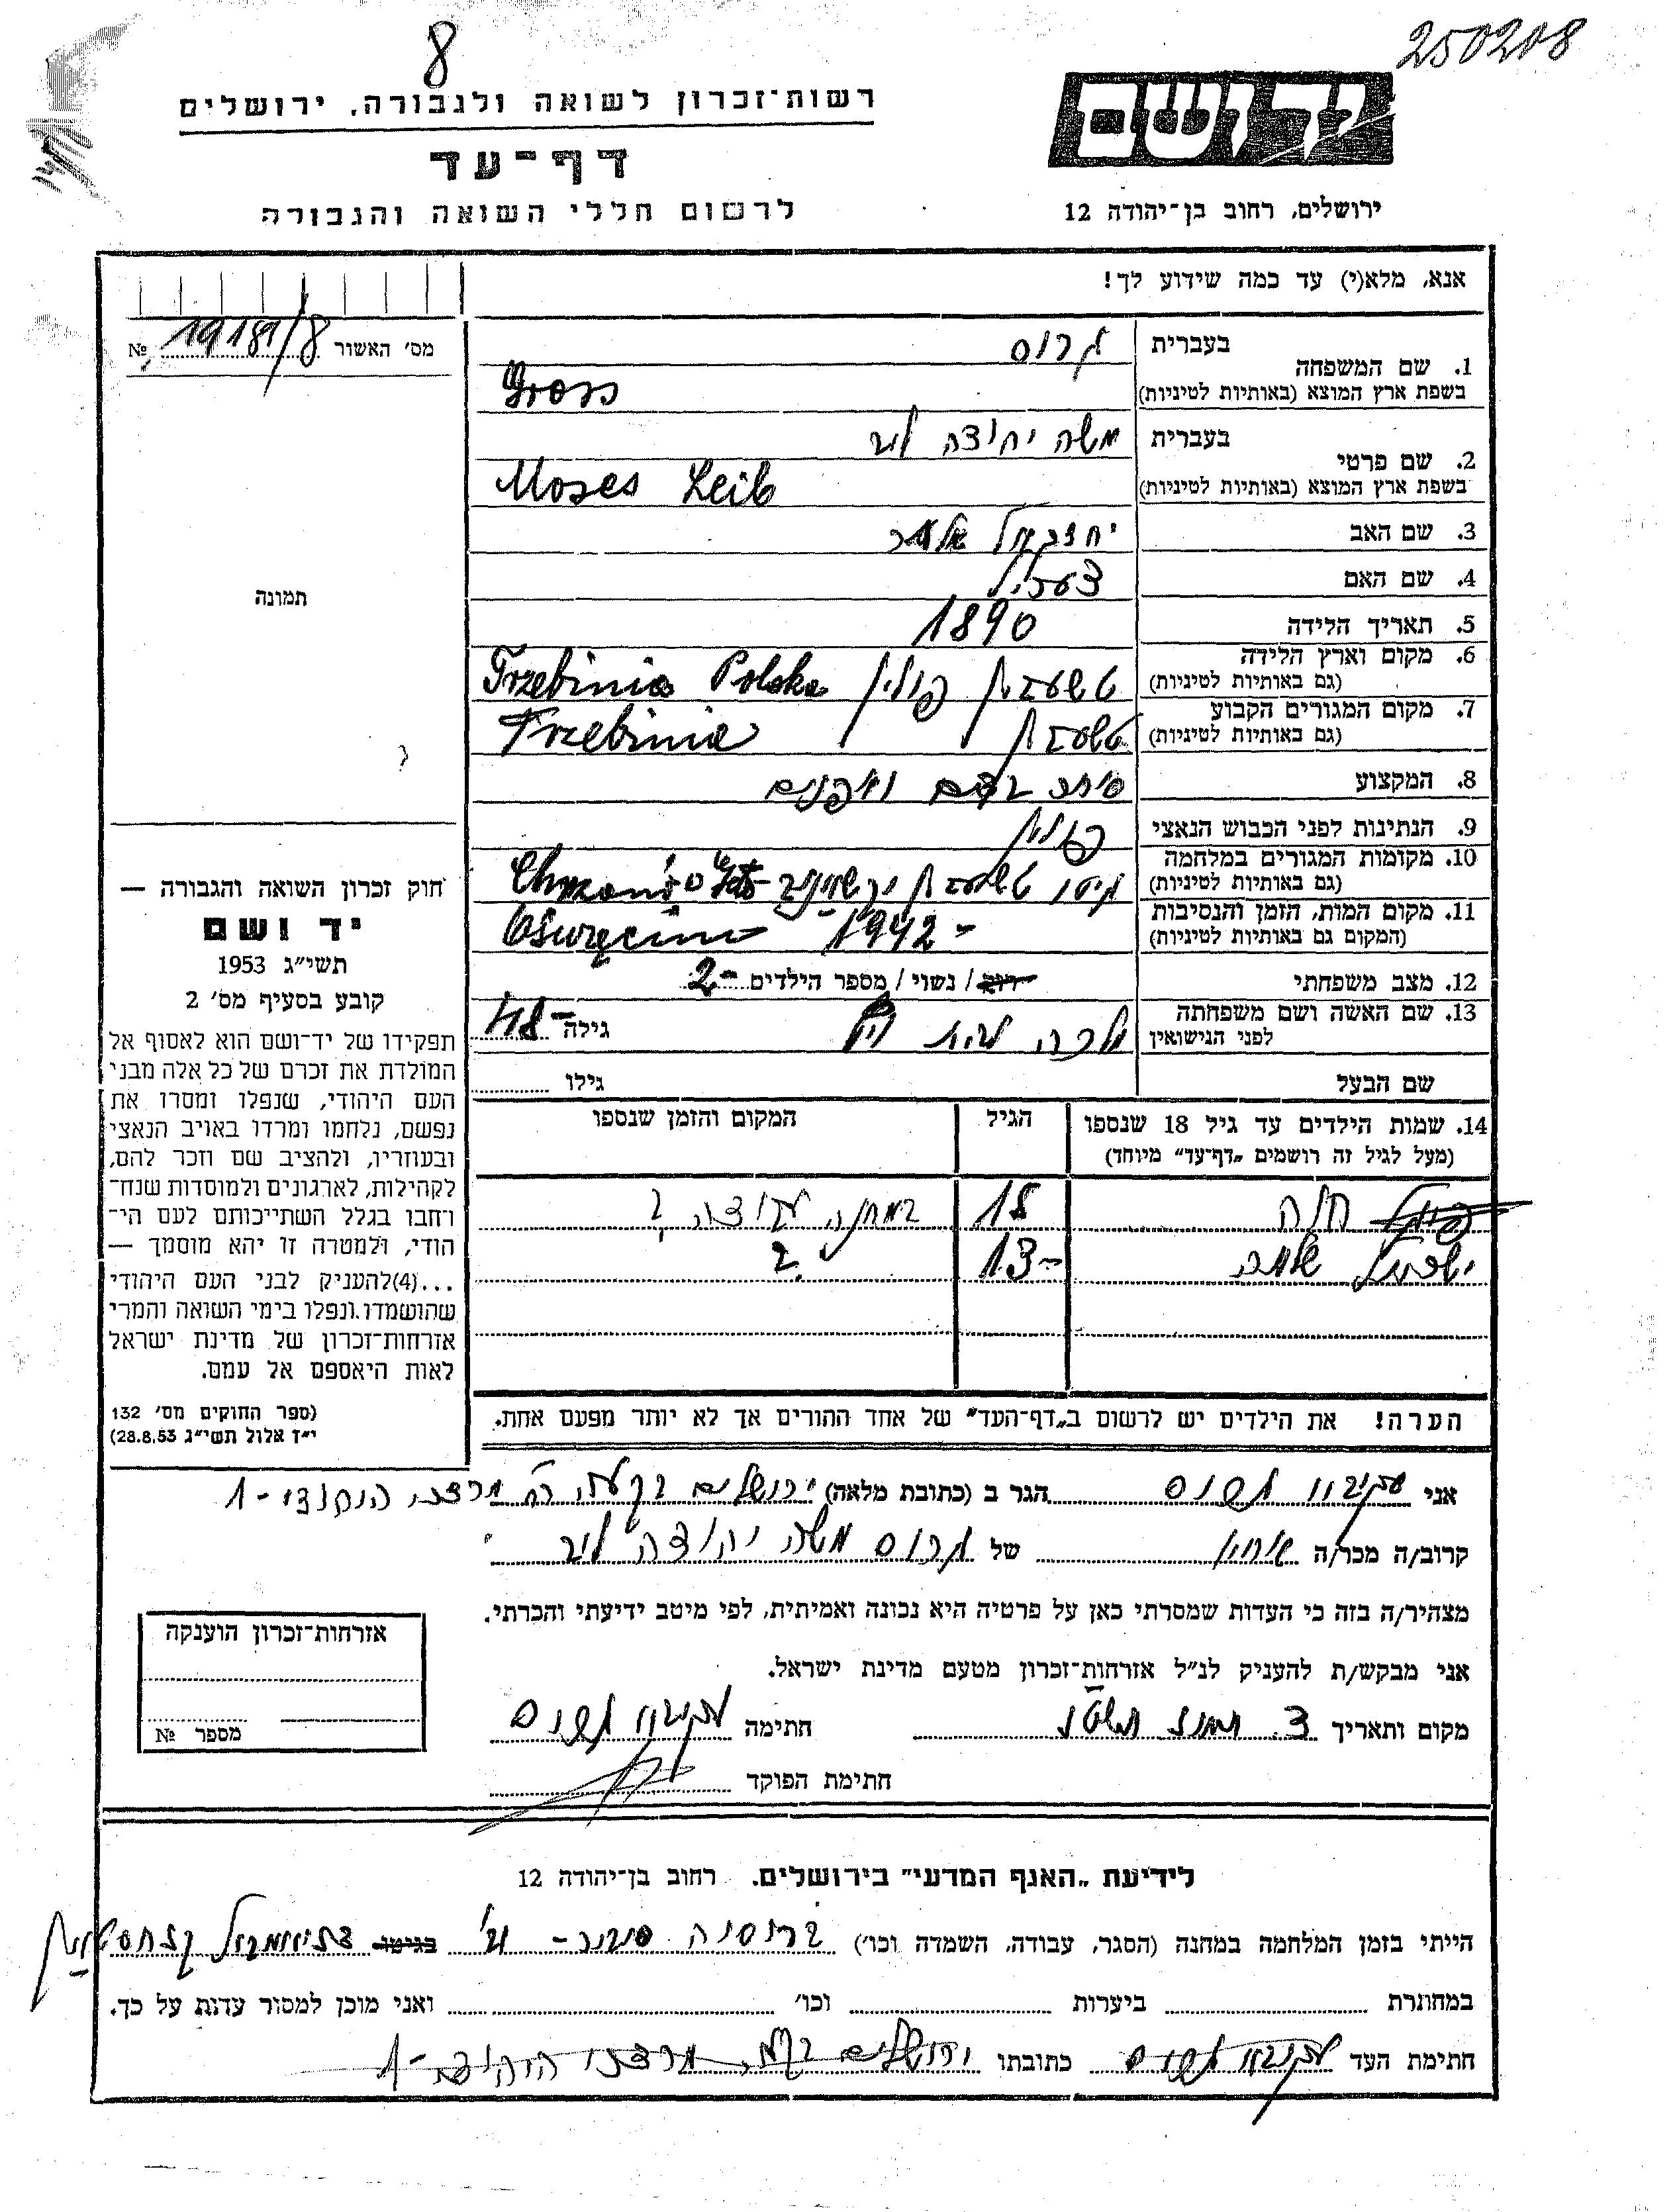 250208
8
יד ושם
רשות־זכרון לשואה ולגבורה, ירושלים
דף־עד
לרשום חללי השואה והגבורה
ירושלים, רחוב בן־יהודה 12
אנא, מלא(י) עד כמה שידוע לך!
מס׳ האשור 19189/8 №
1. שם המשפחה
בעברית גרוס
בשפת ארץ המוצא (באותיות לטיניות) Gross
2. שם פרטי
בעברית משה יהודה ליב
בשפת ארץ המוצא (באותיות לטיניות) Moses Leib
3. שם האב יחזקאל
4. שם האם
5. תאריך הלידה 1890
6. מקום וארץ הלידה
(גם באותיות לטיניות) פולין Trzebinia Polska
7. מקום המגורים הקבוע
(גם באותיות לטיניות) Trzebinia
8. המקצוע סוחר
9. הנתינות לפני הכבוש הנאצי פולנית
10. מקומות המגורים במלחמה
(גם באותיות לטיניות) גיטו Chrzanów
11. מקום המות, הזמן והנסיבות
(המקום גם באותיות לטיניות) Oświęcim 1942-
12. מצב משפחתי רוק / נשוי / מספר הילדים 2-
13. שם האשה ושם משפחתה
לפני הנשואין מלכה לבית גילה 48-
שם הבעל גילו
14. שמות הילדים עד גיל 18 שנספו
(מעל לגיל זה רושמים „דף־עד” מיוחד)
הגיל
המקום והזמן שנספו
חנה 18 במחנה עבודה ?
שלמה 13- ?
תמונה
חוק זכרון השואה והגבורה —
יד ושם
תשי״ג 1953
קובע בסעיף מס׳ 2
תפקידו של יד־ושם הוא לאסוף אל
המולדת את זכרם של כל אלה מבני
העם היהודי, שנפלו ומסרו את
נפשם, נלחמו ומרדו באויב הנאצי
ובעוזריו, ולהציב שם וזכר להם,
לקהילות, לארגונים ולמוסדות שנח־
רחבו בגלל השתייכותם לעם הי־
הודי, ולמטרה זו יהא מוסמך —
...(4)להעניק לבני העם היהודי
שהושמדו ונפלו בימי השואה והמרי
אזרחות־זכרון של מדינת ישראל
לאות היאספם אל עמם.
(ספר החוקים מס׳ 132
י״ז אלול תשי״ג 28.8.53)
הערה! את הילדים יש לרשום ב„דף־העד” של אחד ההורים אך לא יותר מפעם אחת.
אני הגר ב (כתובת מלאה) ירושלים בקעה רח׳ מרדכי היהודי - 1
קרוב/ה מכר/ה של גרוס משה יהודה ליב
מצהיר/ה בזה כי העדות שמסרתי כאן על פרטיה היא נכונה ואמיתית, לפי מיטב ידיעתי והכרתי.
אני מבקש/ת להעניק לנ״ל אזרחות־זכרון מטעם מדינת ישראל.
מקום ותאריך חתימה
חתימת הפוקד
אזרחות־זכרון הוענקה
מספר №
לידיעת „האנף המדעי” בירושלים. רחוב בן־יהודה 12
הייתי בזמן המלחמה במחנה (הסגר, עבודה, השמדה וכו׳) ברוסיה סיביר- בגיטו
במחתרת ביערות וכו׳ ואני מוכן למסור עדות על כך.
חתימת העד כתובתו ירושלים בקעה, מרדכי היהודי - 1